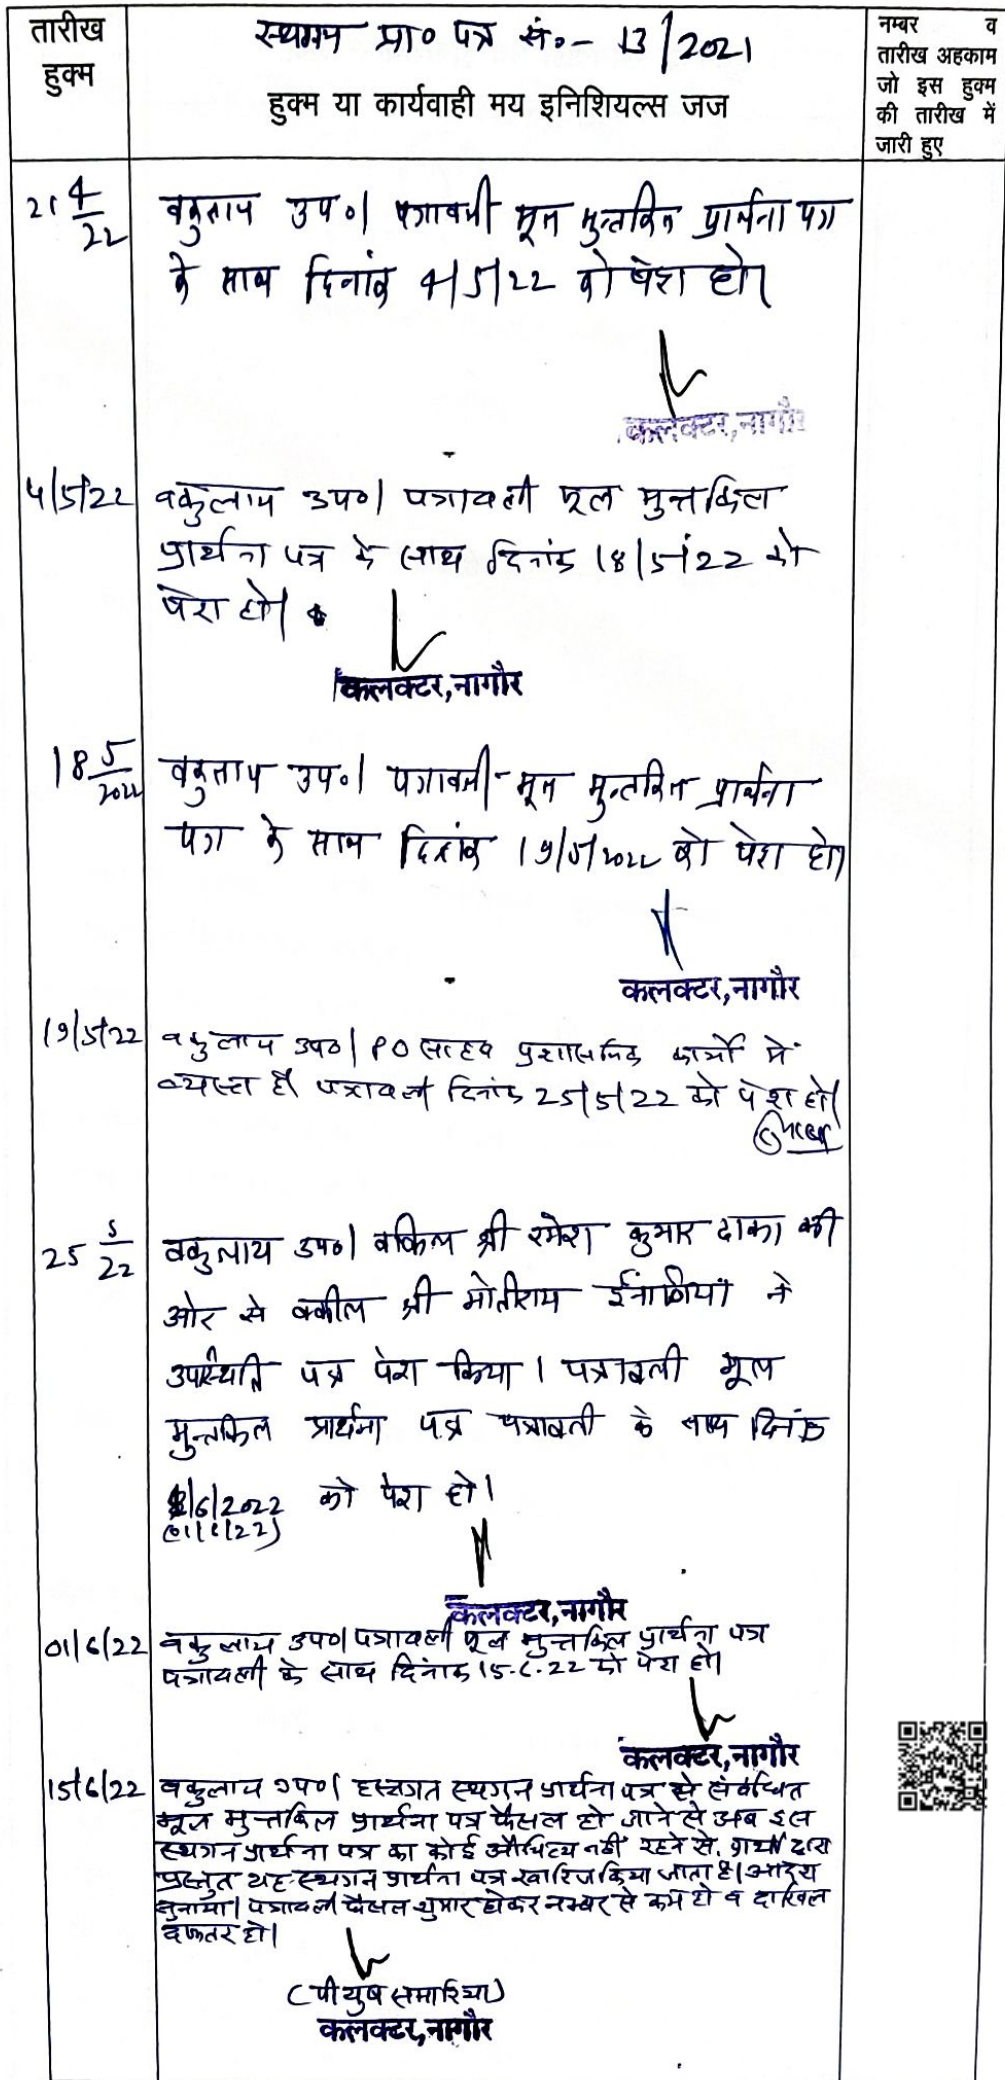 तारीख
हुक्म
स्थगन प्रा० पत्र सं०- 13/2021
हुक्म या कार्यवाही मय इनिशियल्स जज
नम्बर व
तारीख अहकाम
जो इस हुक्म
की तारीख में
जारी हुए
21 4/22
वकुलाय उप०। पत्रावली मूल मुन्तकिल प्रार्थना पत्र
के साथ दिनांक 4/5/22 को पेश हो।
कलक्टर,नागौर
4/5/22
वकुलाय उप०। पत्रावली मूल मुन्तकिल
प्रार्थना पत्र के साथ दिनांक 18/5/22 को
पेश हो।
कलक्टर,नागौर
18 5/2022
वकुलाय उप०। पत्रावली मूल मुन्तकिल प्रार्थना
पत्र के साथ दिनांक 19/5/2022 को पेश हो।
कलक्टर,नागौर
19/5/22
वकुलाय उप०। PO साहब प्रशासनिक कार्यों में
व्यस्त है। पत्रावली दिनांक 25/5/22 को पेश हो।
25 5/22
वकुलाय उप०। वकिल श्री रमेश कुमार ढाका की
ओर से वकील श्री मोतीराम ईनाणियां ने
उपस्थिति पत्र पेश किया। पत्रावली मूल
मुन्तकिल प्रार्थना पत्र पत्रावली के साथ दिनांक
1/6/2022 को पेश हो।
(01/6/22)
कलक्टर,नागौर
01/6/22
वकुलाय उप०। पत्रावली मूल मुन्तकिल प्रार्थना पत्र
पत्रावली के साथ दिनांक 15.6.22 को पेश हो।
कलक्टर,नागौर
15/6/22
वकुलाय उप०। हस्तगत स्थगन प्रार्थना पत्र से संबंधित
मूल मुन्तकिल प्रार्थना पत्र फैसल हो जाने से अब इस
स्थगन प्रार्थना पत्र का कोई औचित्य नहीं रहने से, प्रार्थी द्वारा
प्रस्तुत यह स्थगन प्रार्थना पत्र खारिज किया जाता है। आदेश
सुनाया। पत्रावली फैसल शुमार होकर नम्बर से कम हो व दाखिल
दफ्तर हो।
(पीयुष समारिया)
कलक्टर,नागौर